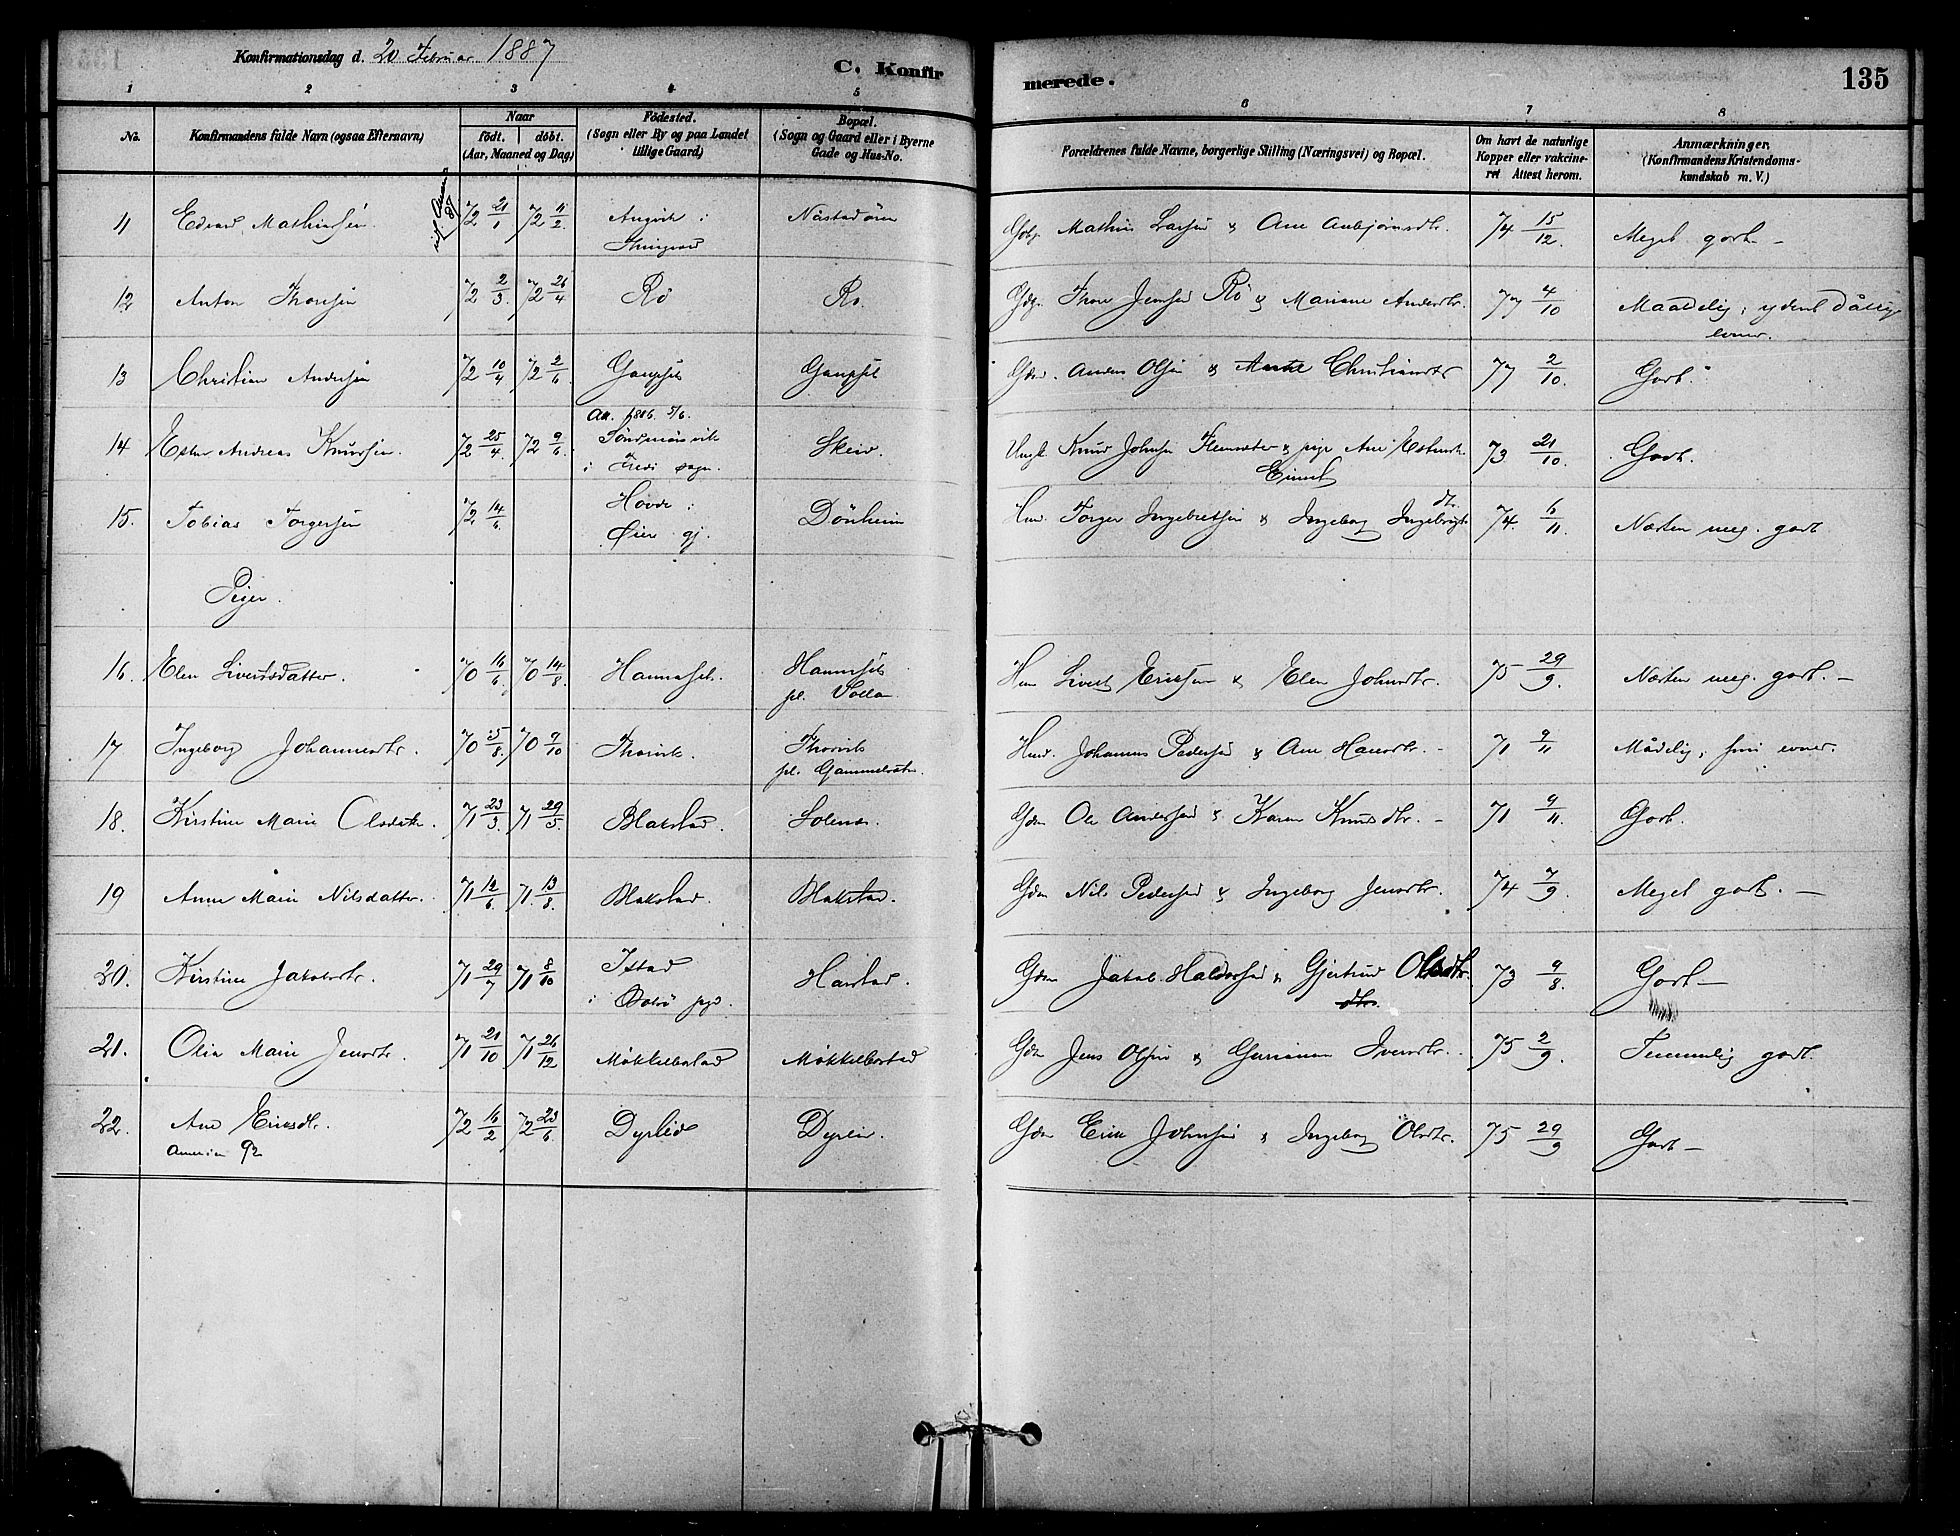 Konfirmationsdag d. 20 Februar 1887
C. Konfirmerede.
135
1 2 3 4 5 6 7 8
No. Konfirmandens fulde Navn (ogsaa Efternavn) Naar födt. döbt. (Aar, Maaned og Dag) Födested. (Sogn eller By og paa Landet tillige Gaard) Bopæl. (Sogn og Gaard eller i Byerne Gade og Hus-No. Forældrenes fulde Navne, borgerlige Stilling (Næringsvei) og Bopæl. Om havt de naturlige Kopper eller vakcineret Attest herom. Anmærkninger, (Konfirmandens Kristendomskundskab m. V.)
11 Edvard Mathiassen. 72 21/1 72 11/2 i Mathias Larsen & Ane 74 15/12. Meget godt. –
12 Anton Thoresen 72 2/3. 72 26/4 Rö Rö. Gdbr. Thore Jensen Rö & Mariane Andersdtr. 77 4/10 Maadelig; ydent dårlige evner.
13 Christian Andersen 72 10/4 72 2/6. Gaupset Gaupset Gdm. Anders Olsen & Marte Christiansdtr 77 2/10. Godt.
14 Ester Andreas Knudsen. 72 25/4 72 9/6 1886 5/6. i Fredö sogn. Skeid. Ungk. Knud Johnsen & pige Ane Estensdtr. Eimet 73 21/10. Godt.
15. Tobias Torgersen 72 14/6. Hovde i Öier gj. Dönheim Hmd. Torger Ingebretsen & Ingeborg Ingebrigtsdtr. 74. 6/11 Næsten meg. godt
Piger.
16. Elen Sivertsdatter. 70 16/6. 70 14/8. Hammeset. Hammeset pl. Hm Sivert Eriksen & Elen Johnsdtr. 75 29/9. Næsten meg. godt. –
17 Ingeborg Johannesdtr. 70 5/8. 70 9/10 Thorvik. Thorvik pl. Hmd. Johannes Pedersen & Ane Hansdtr. – 71 9/11 Mådelig; små evner.
18. Kirstine Marie Olsdatter. 71 23/3. 71 29/5. Blakstad. Solem. Gdm Ole Andersen & Karen Knudsdtr. – 71 9/11. Godt.
19 Anne Marie Nilsdatter. 71 12/6. 71. 13/8. Blakstad. Blakstad. Gdm Nils Pedersen & Ingeborg Jensdtr. 74 7/9. Meget godt. –
20. Kirstine Jakobsdtr. 71 29/7 71 8/10 Istad i Bolsö pgd. Harstad. Gdm Jakob Haldorsen & Gjertrud Olsdtr. dtr. 73 9/8. Godt –
21. Olia Marie Jensdtr. 71 21/10 71 26/12 Mökkelbostad Mökkelbostad Gdm Jens Olsen & Iversdtr. 75 2/9. Temmelig godt.
22. Ane Eriksdtr. 72 16/2 72 23/6 Dyrlid Dyrlid. Gdm Erik Johnsen & Ingeborg Olsdtr. 75 29/9 Godt –
Amerika 92